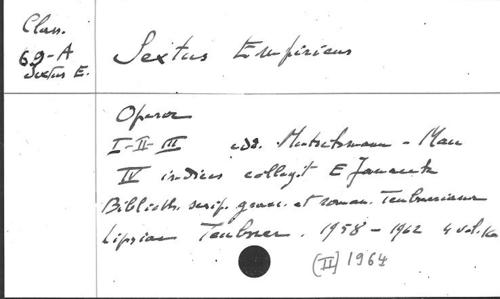 Class.
69-A
Sextus E.
Sextus Empiricus
Opera
I-II-III edd. Mutschmann - Mau
IV indices collegit K Janacek
Biblioth. scrip. graec. et roman. Teubneriana
Lipsiae Teubner. 1958 - 1962 4 vol.
(II) 1964